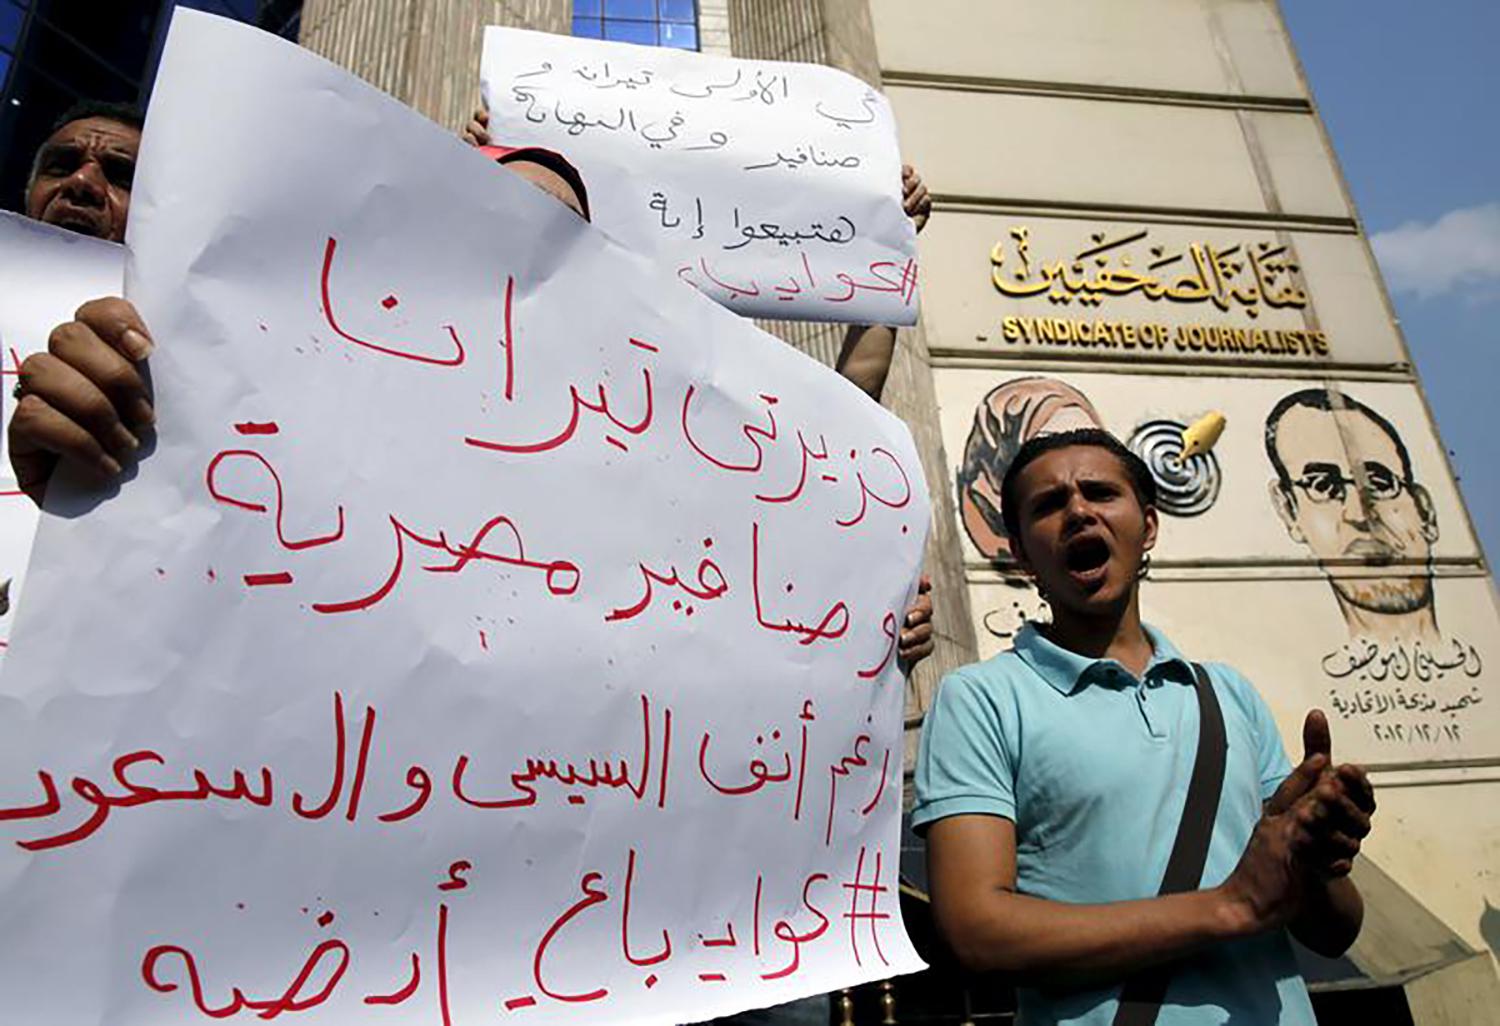 في الأولى تيرانه و
صنافير و في النهاية
هتبيعوا إية
#كواديباع
جزيرتى تيرانا
و صنافير مصرية
رغم أنف السيسى و ال سعود
#كواديباع_أرضه
نقابة الصحفيين
SYNDICATE OF JOURNALISTS
الحسيني أبو ضيف
شهيد مذبحة الاتحادية
٢٠١٢/١٢/١٢